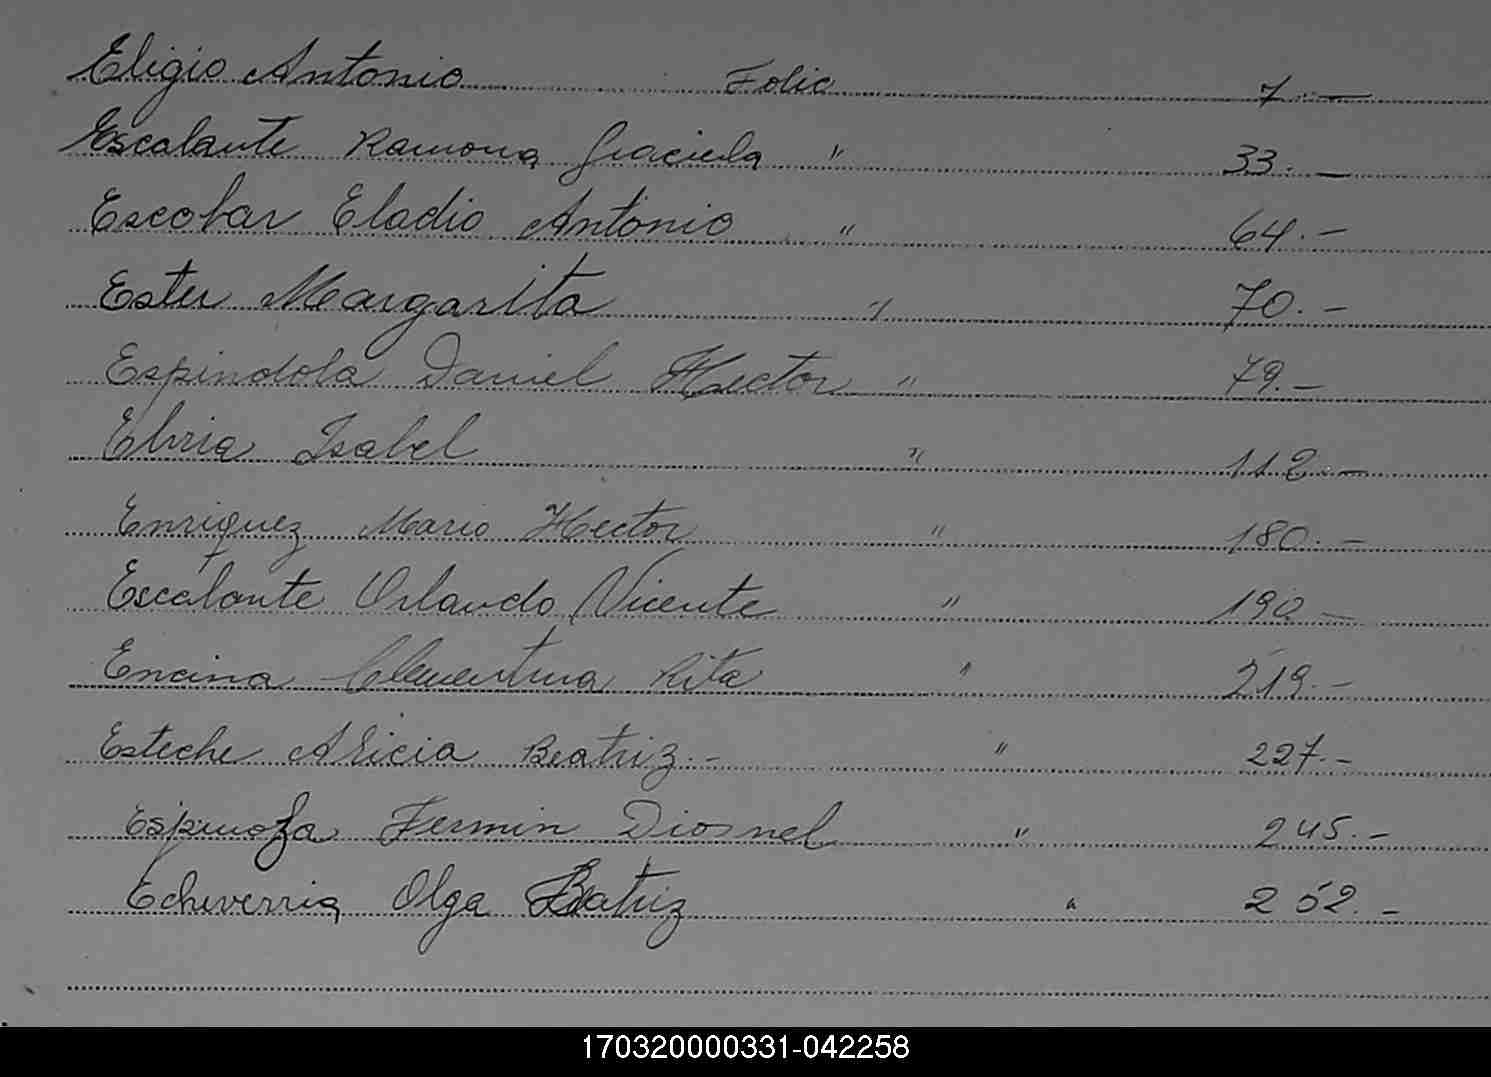 Eligio Antonio Folio 7.—
Escalante Ramona Graciela " 33.—
Escobar Eladio Antonio " 64.—
Ester Margarita " 70.—
Espindola Daniel Hector " 79.—
Elvia Isabel " 112.—
Enriquez Mario Hector " 180.—
Escalante Orlando Vicente " 190.—
Encina Clementina Rita " 219.—
Esteche Alicia Beatriz.- " 227.—
Espinoza Fermin Diosnel " 245.—
Echeverria Olga Beatriz " 252.—
170320000331-042258